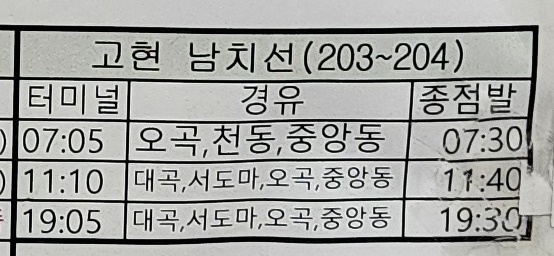 고현 남치선(203~204)
터미널 경유 종점발
07:05 오곡,천동,중앙동 07:30
11:10 대곡,서도마,오곡,중앙동 11:40
19:05 대곡,서도마,오곡,중앙동 19:30